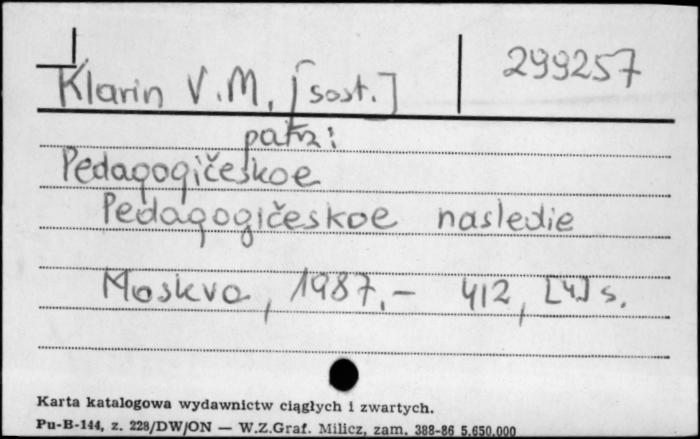 Klarin V.M. [sost.] 299257
patrz:
Pedagogičeskoe
Pedagogičeskoe nasledie
Moskva, 1987.- 412, [4] s.
Karta katalogowa wydawnictw ciągłych i zwartych.
Pu-B-144, z. 228/DW/ON — W.Z.Graf. Milicz, zam. 388-86 5.650.000